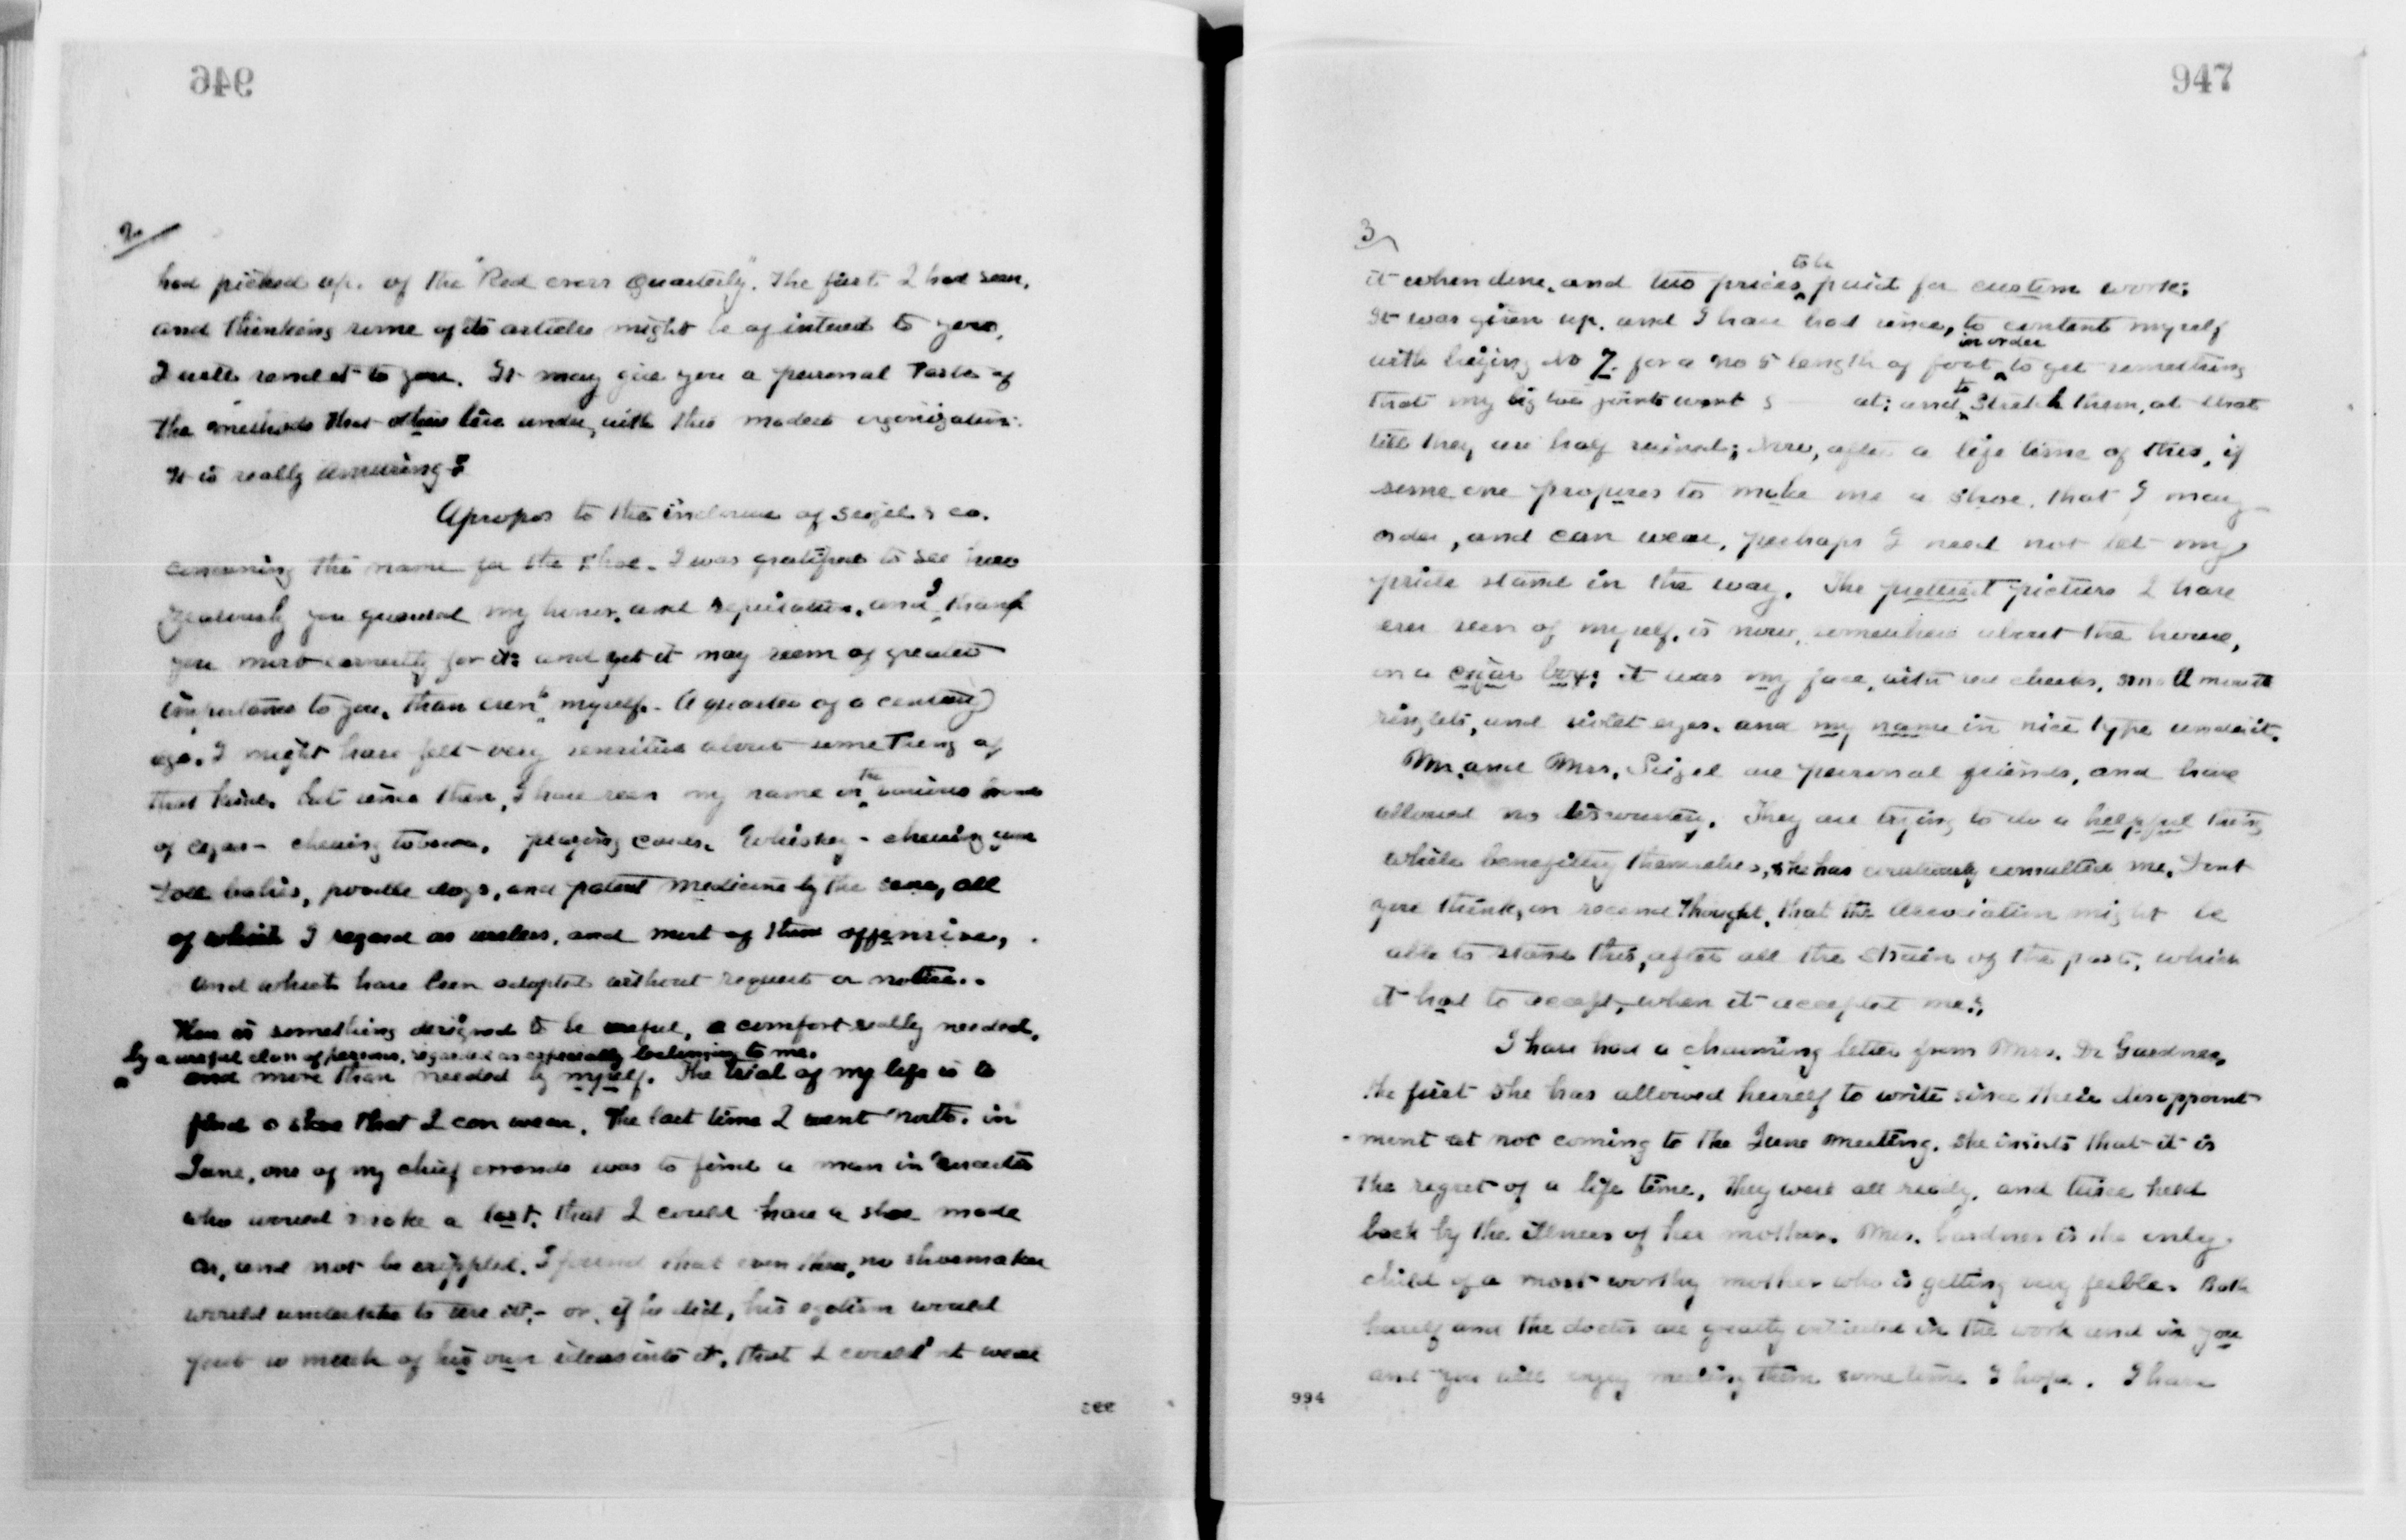 946
2
had picked up. of the "Red cross Quarterly". The first I had seen,
and thinking some of its articles might be of interest to you,
I will send it to you. It may give you a personal taste of
the methods that others live under, with this modest organization.
It is really amusing
Apropos to the inclosure of Seigel & co.
concerning the name for the shoe. I was gratified to see how
zealously you guarded my honor, and reputation, and I thank
you most earnestly for it: and yet it may seem of greater
importance to you, than even to myself. A quarter of a century
ago. I might have felt very sensitive about something of
that kind. but since then, I have seen my name in the various
of cigars - chewing tobacco, playing cards. Whiskey - chewing gum
Doll babies, poodle dogs, and patent medicine by the score, all
of which I regard as useless, and most of them offensive,
and which have been adopted without request or notice.
Here is something designed to be useful, a comfort really needed,
by a useful class of persons, regarded as especially belonging to me.
and more than needed by myself. The trial of my life is to
find a shoe that I can wear. The last time I went north. in
June, one of my chief errands was to find a man in
who would make a last, that I could have a shoe made
on, and not be crippled. I found that even then, no shoemaker
would undertake to use it. - or, if he did, his egotism would
put so much of his own ideas into it, that I could'nt wear
947
3
it when done, and two prices to be paid for custom work;
It was given up. and I have had since, to content myself
with buying No 7. for a no 5 length of foot in order to get something
that my big toe joints wont at; and to stretch them, at that
till they are half ruined; Now, after a life time of this, if
some one proposes to make me a shoe, that I may
order, and can wear, perhaps I need not let my
pride stand in the way. The prettiest picture I have
ever seen of myself, is now, somewhere about the house,
on a cigar box; it was my face, with red cheeks, small mouth
ringlets, and violet eyes. and my name in nice type under it.
Mr. and Mrs. Seigel are personal friends, and have
allowed no discourtesy. They are trying to do a helpful thing
while benefitting themselves, she has cautiously consulted me, Dont
you think, on second thought, that the Association might be
able to stand this, after all the strain of the past, which
it had to accept, when it accepted me?
I have had a charming letter from Mrs. Dr Gardner,
the first she has allowed herself to write since their disappoint-
-ment at not coming to the June meeting. she insists that it is
the regret of a life time, They were all ready, and twice held
back by the illness of her mother. Mrs. Gardner is the only
child of a most worthy mother who is getting very feeble. Both
herself and the doctor are greatly interested in the work and in you
and you will enjoy meeting them sometime I hope. I have
994